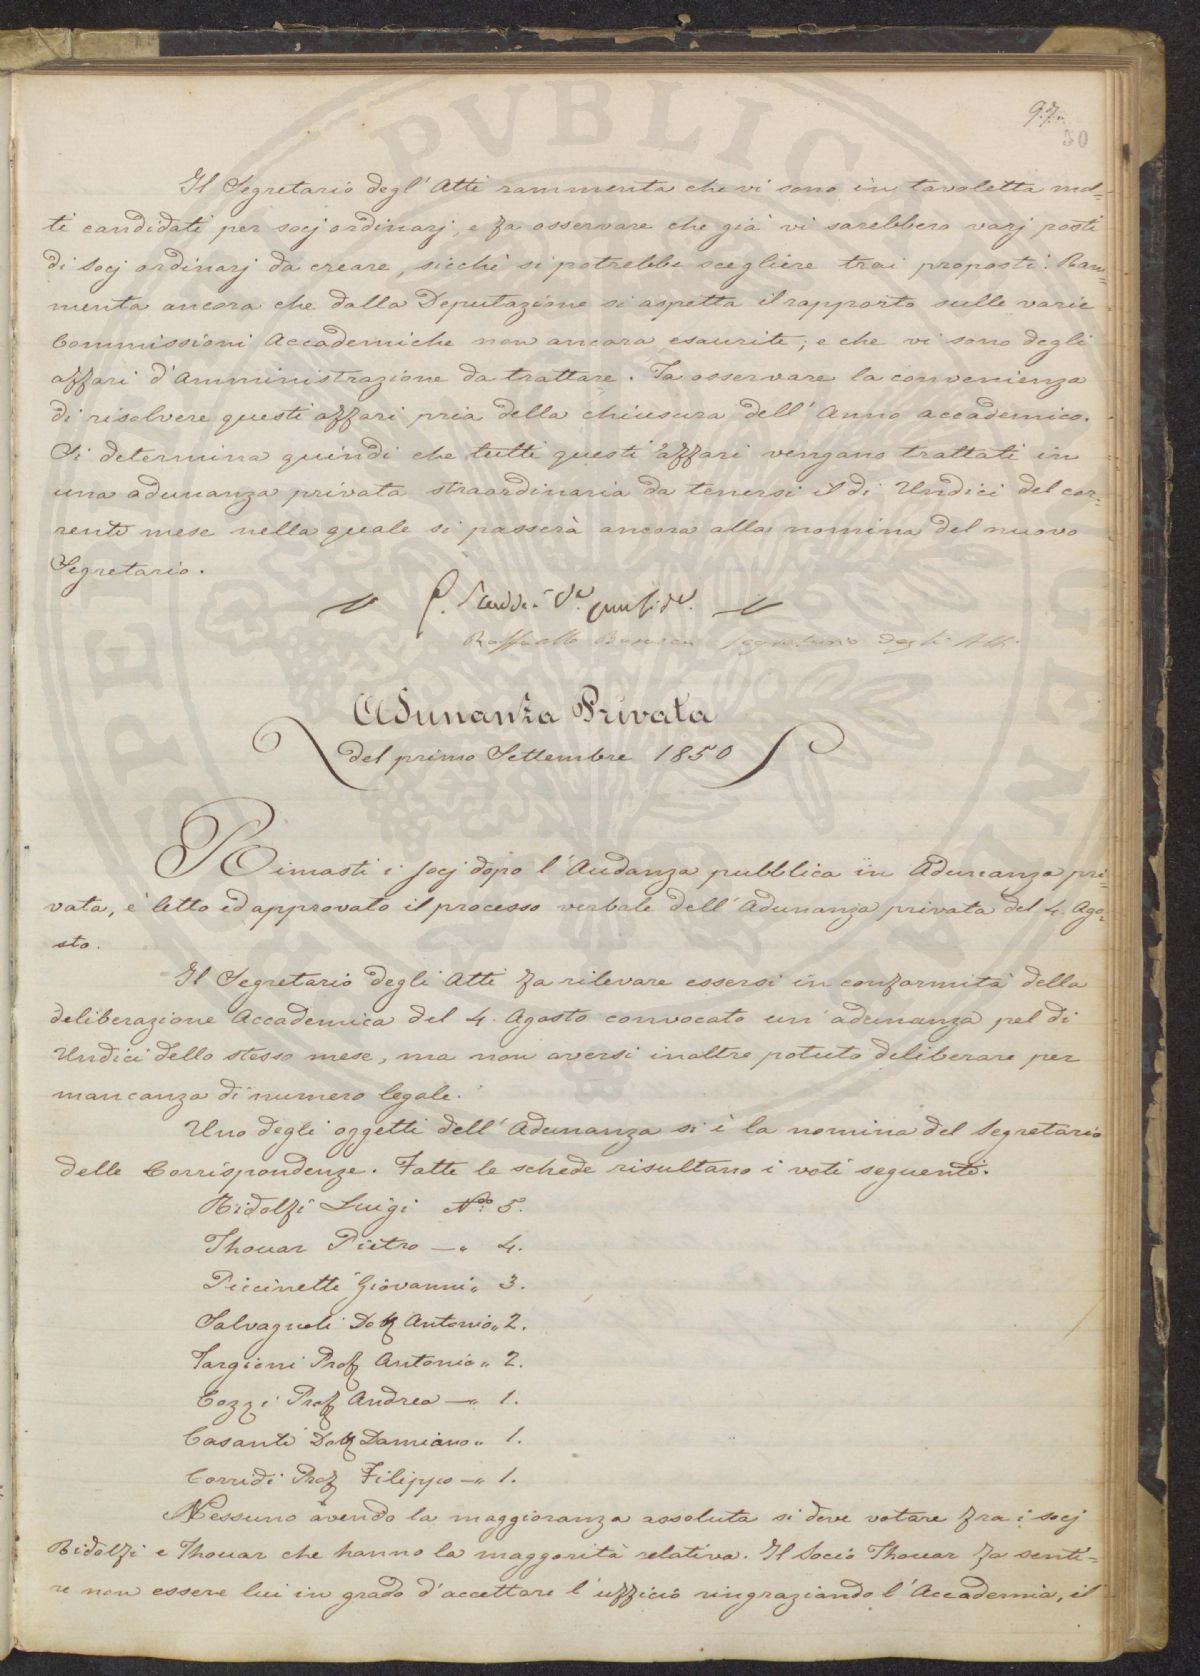 97.
50
Il Segretario degl' Atti rammenta che vi sono in tavoletta mol=
ti candidati per socj ordinarj, e fa osservare che già vi sarebbero varj posti
di Socj ordinarj da creare, sicchè si potrebbe scegliere trai proposti. Ram=
menta ancora che dalla Deputazione si aspetta il rapporto sulle varie
Commissioni Accademiche non ancora esaurite; e che vi sono degli
affari d'Amministrazione da trattare. Fa osservare la convenienza
di risolvere questi affari pria della chiusura dell' Anno accademico.
Si determina quindi che tutti questi affari vengano trattati in
una adunanza privata straordinaria da tenersi il di Undici del cor=
rente mese nella quale si passerà ancora alla nomina del nuovo
Segretario.
Segretario degli Atti.
Adunanza Privata
del primo Settembre 1850
Rimasti i socj dopo l'Audanza pubblica in Adunanza pri=
vata, è letto ed approvato il processo verbale dell'Adunanza privata del 4. Ago=
sto.
Il Segretario degli Atti fa rilevare essersi in conformità della
deliberazione Accademica del 4. Agosto convocato un' adunanza pel di
Undici dello stesso mese, ma non aversi inoltre potuto deliberare per
mancanza di numero legale.
Uno degli oggetti dell' Adunanza si è la nomina del Segretario
delle Corrispondenze. Fatte le schede risultano i voti seguenti.
Ridolfi Luigi No. 5.
Thouar Pietro — „ 4.
Piccinetti Giovanni „ 3.
Salvagnoli Dott Antonio „ 2.
Targioni Prof Antonio „ 2.
Cozzi Prof Andrea — „ 1.
Casanti Dott Damiano „ 1.
Corridi Prof Filippo — „ 1.
Nessuno avendo la maggioranza assoluta si deve votare fra i socj
Ridolfi e Thouar che hanno la maggorità relativa. Il Socio Thouar fa senti=
re non essere lui in grado d'accettare l'uffizio ringraziando l'Accademia, il